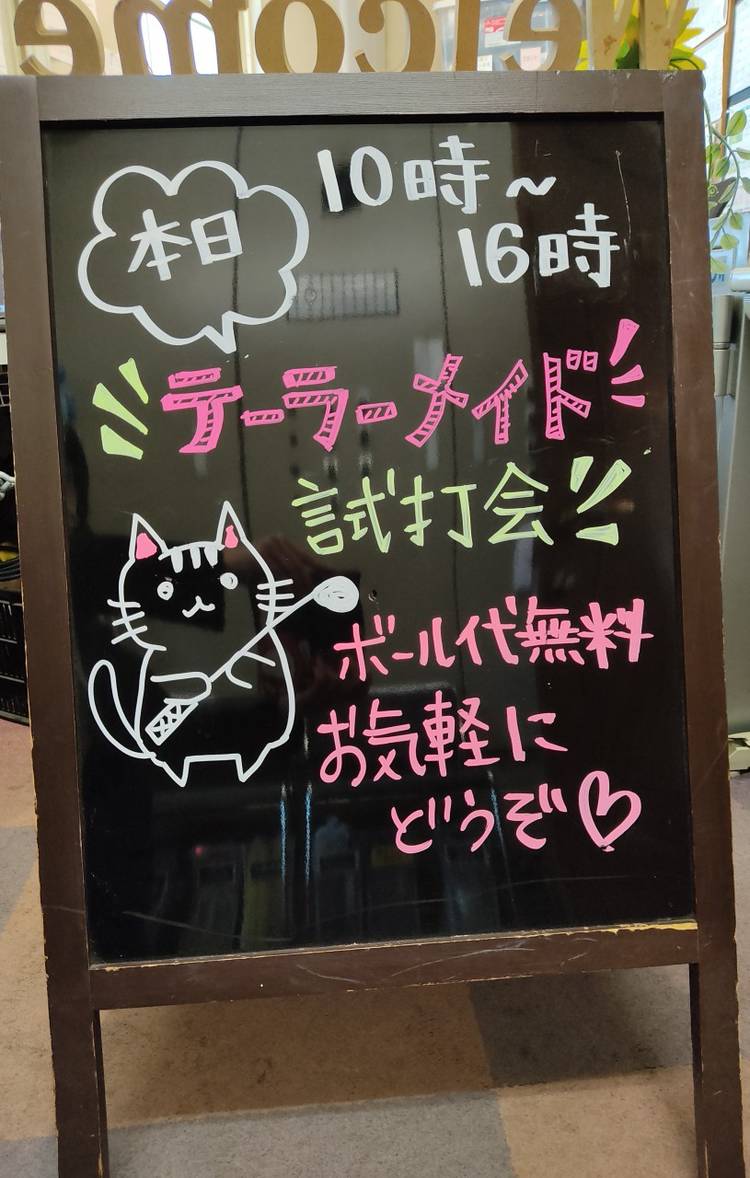 welcome
本日
10時~
16時
テーラーメイド
試打会
ボール代無料
お気軽に
どうぞ♡